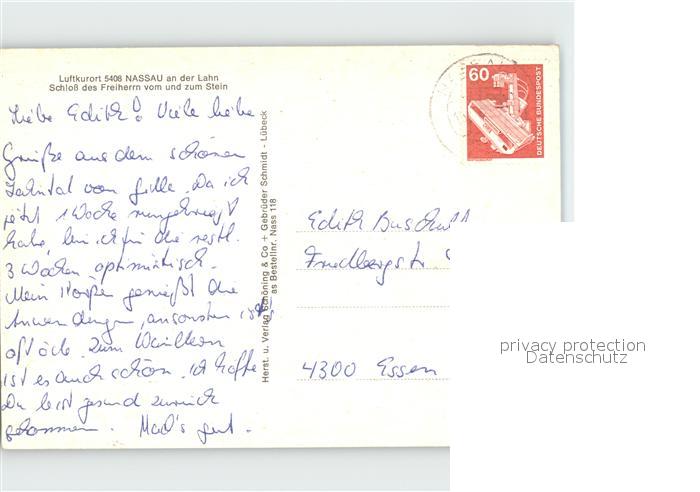 Luftkurort 5408 NASSAU an der Lahn
Schloß des Freiherrn vom und zum Stein
Liebe Edith! Viele liebe
Grüße aus dem schönen
Lahntal von Gille. Da ich
jetzt 1 Woche rumgekriegt
habe, bin ich für die restl.
3 Wochen optimistisch.
Mein Körper genießt die
Anwendungen, ansonsten ist's
oft öde. Zum
ist es auch schön. Ich hoffe
Du bist gesund zurück
gekommen. Mach's gut.
Herst. u. Verlag Schöning & Co + Gebrüder Schmidt - Lübeck
as Bestellnr. Nass 118
60
DEUTSCHE BUNDESPOST
Edith
4300 Essen
privacy protection
Datenschutz